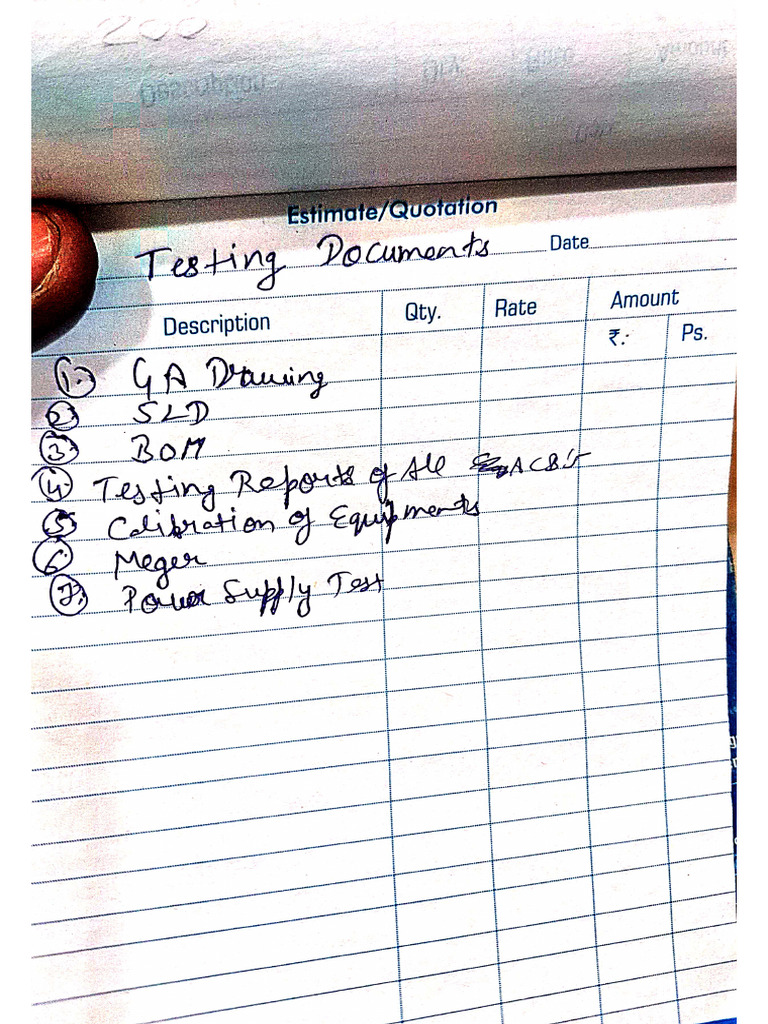 200
Estimate/Quotation
Testing Documents Date
Description Qty. Rate Amount
₹: Ps.
1. GA Drawing
2. SLD
3. BOM
4. Testing Reports of All ACB's
5. Calibration of Equipments
6. Meger
7. Power Supply Test